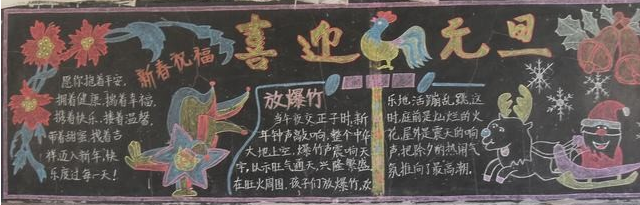 喜迎元旦
新春祝福
愿你抱着平安,
拥着健康,揣着幸福,
携着快乐,搂着温馨,
带着甜蜜,找着吉
祥迈入新年,快
乐度过每一天!
放爆竹
当午夜交正子时,新
年钟声敲响,整个中华
大地上空,爆竹声震响天
宇,以示旺气通天,兴隆繁盛。
在旺火周围,孩子们放爆竹,欢
乐地活蹦乱跳,这
时,庭前是灿烂的火
花,屋外是震天的响
声,把除夕的热闹气
氛推向了最高潮。